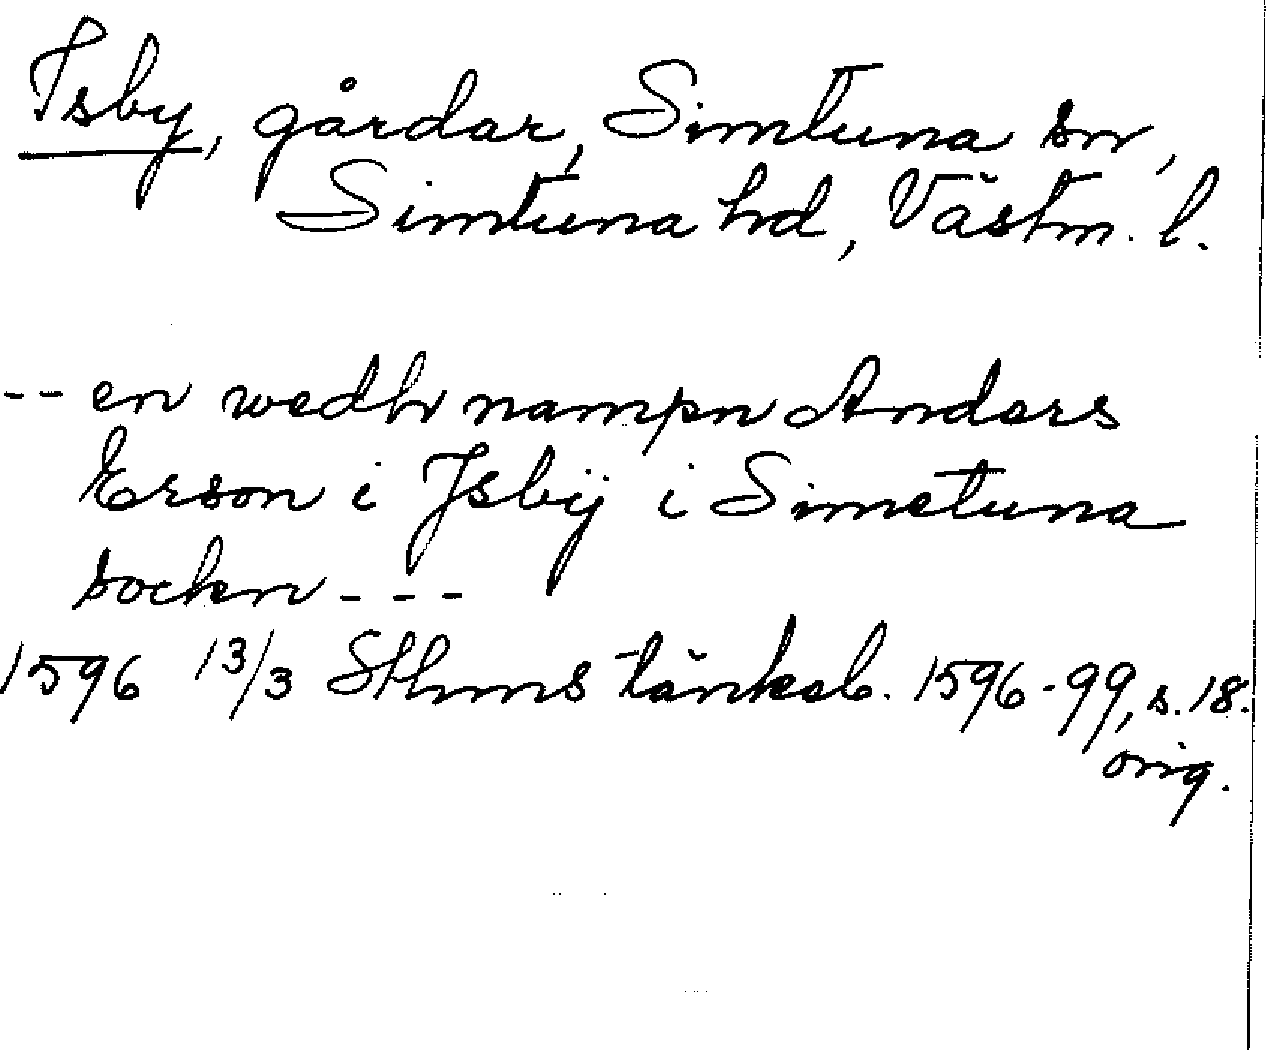 Isby, gårdar, Simtuna sn,
Simtuna hd, Västm. l.
-- en wedh nampn Anders
Erson i Jsbij i Simetuna
socken ---
1596 13/3 Sthms tänkeb. 1596-99, s. 18.
orig.